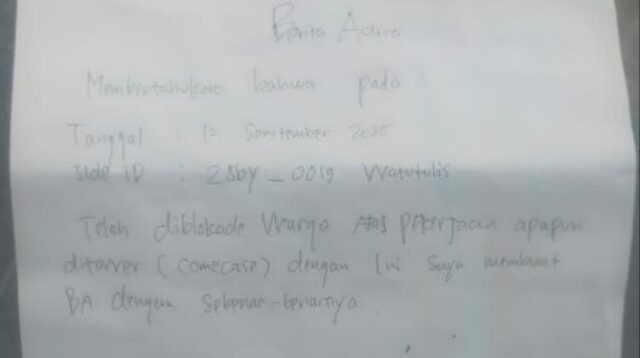 Berita Acara
Membertahukan bahwa pada
Tanggal : 12 Semtember 2025
Side ID : 2Sby_0019 Watutulis
Telah diblokade Warga Atas PAkerjaan apapun
ditower (comecase) dengan Ini Saya membuat
BA dengan Sebenar-benarnya.